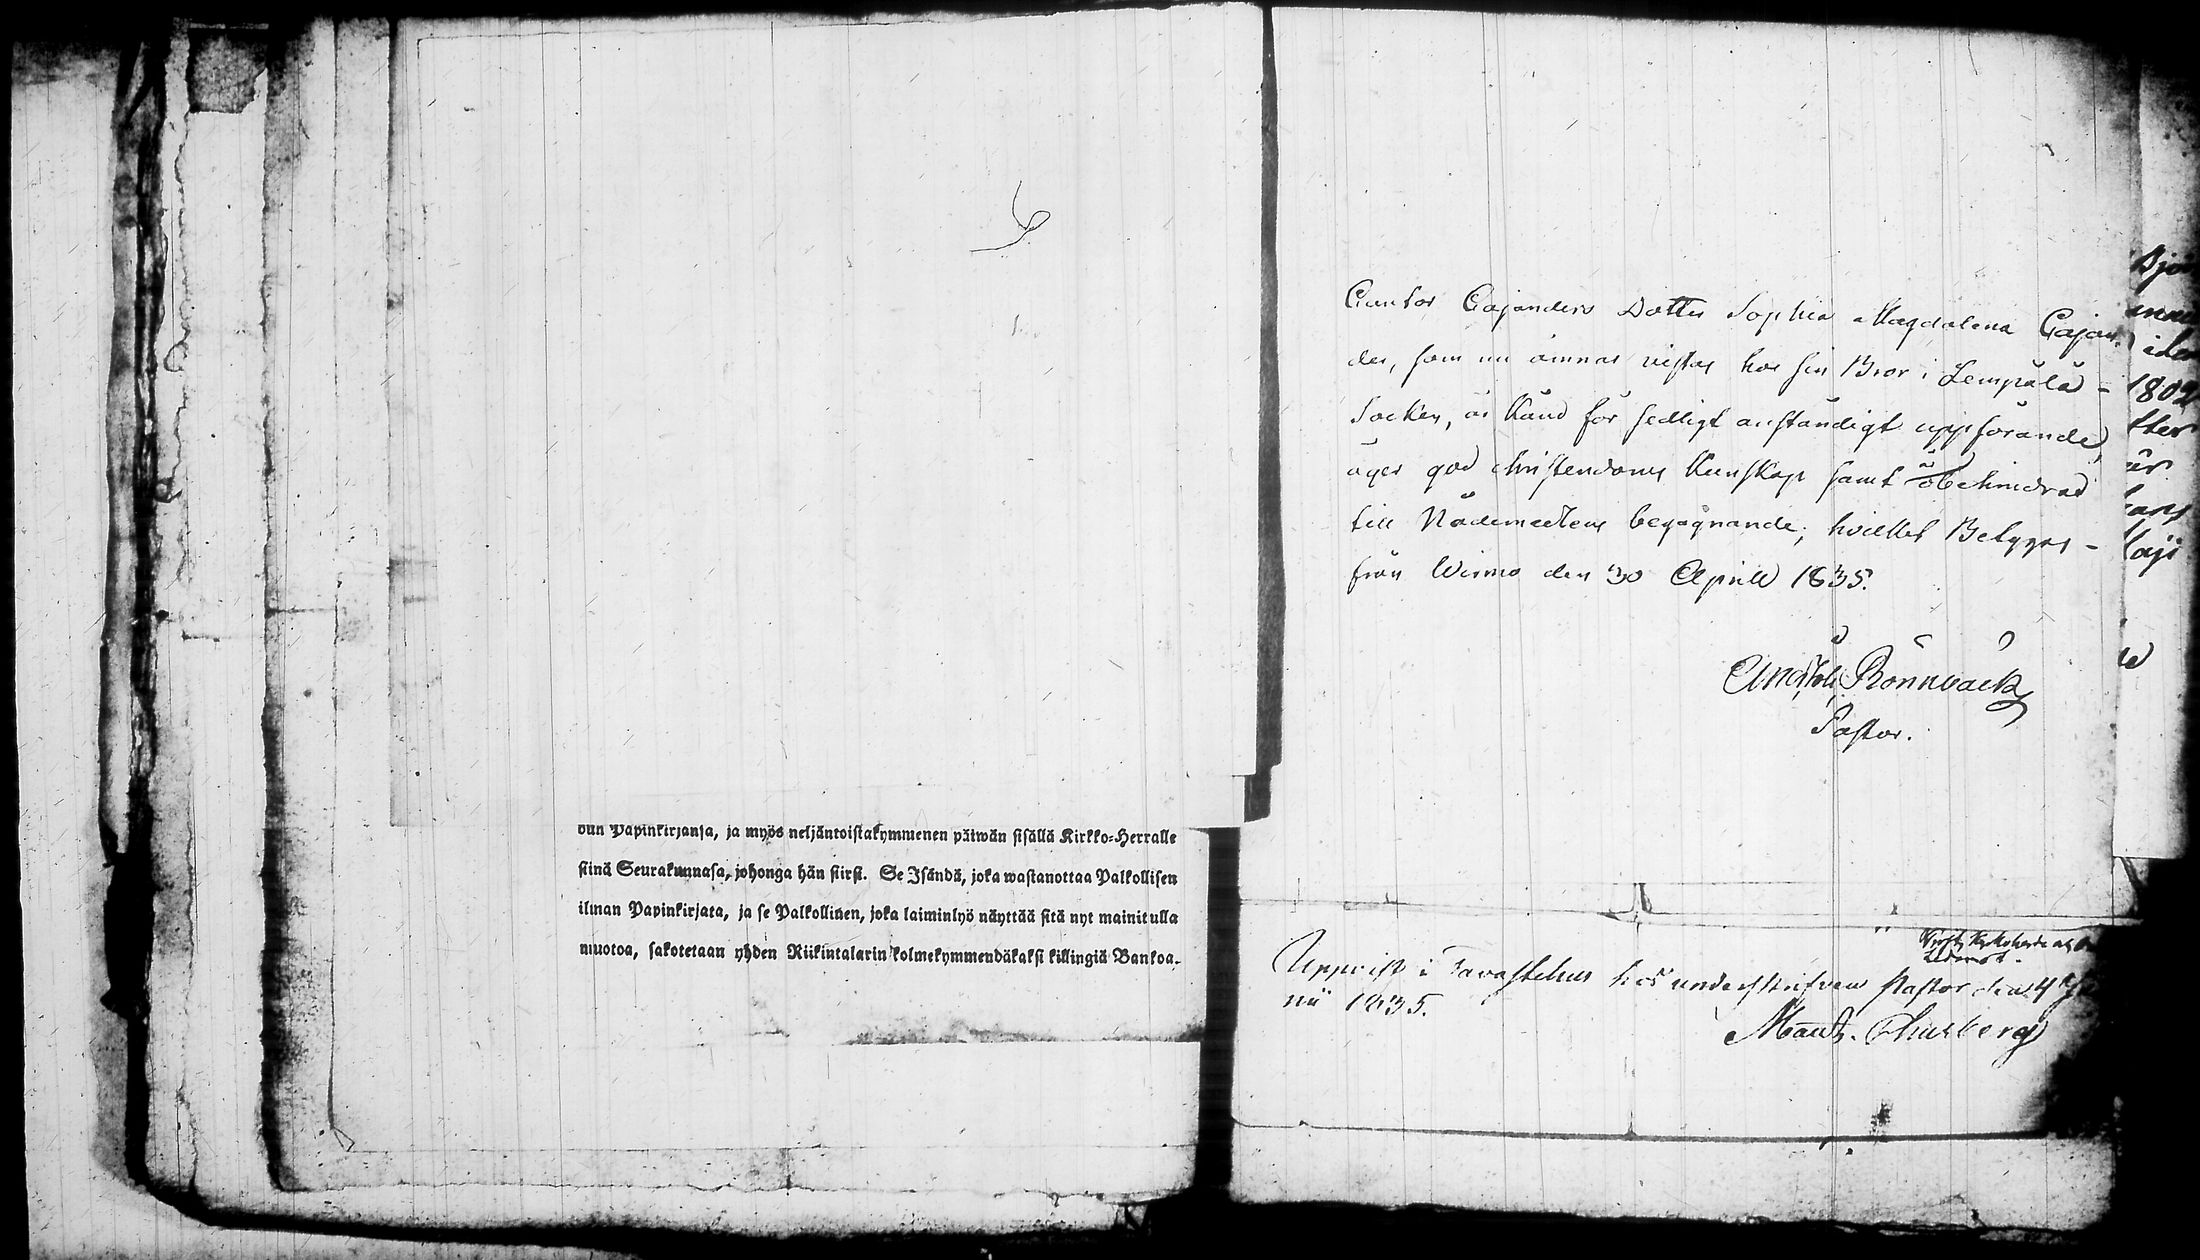 Papinkirjansa, ja myös neljäntoistakymmenen päiwän sisällä Kirkko-Herralle
siinä Seurakunnasa, johonga hän siirsi. Se Isändä, joka wastanottaa Palkollisen
ilman Papinkirjata, ja se Palkollinen, joka laiminlyö näyttää sitä nyt mainitulla
muotoa, sakotetaan yhden Riikintalarin kolmekymmendäkaksi killingiä Bankoa.
Cantor Cajanders Dotter Sophia Magdalena Cajan
der, som nu ämnar vistas hos sin Bror i Lempälä-
Socken, är känd för sedligt anständigt uppförande,
äger god christendoms kunskap samt är obehindrad
till Nådemedlens begagnande; hvilket Betygas-
från Wirmo den 30 Aprill 1835.
Rönnbäck
Pastor.
Uppvist i Tavastehus hos underskrifven Pastor den 4
nii 1835.
1802